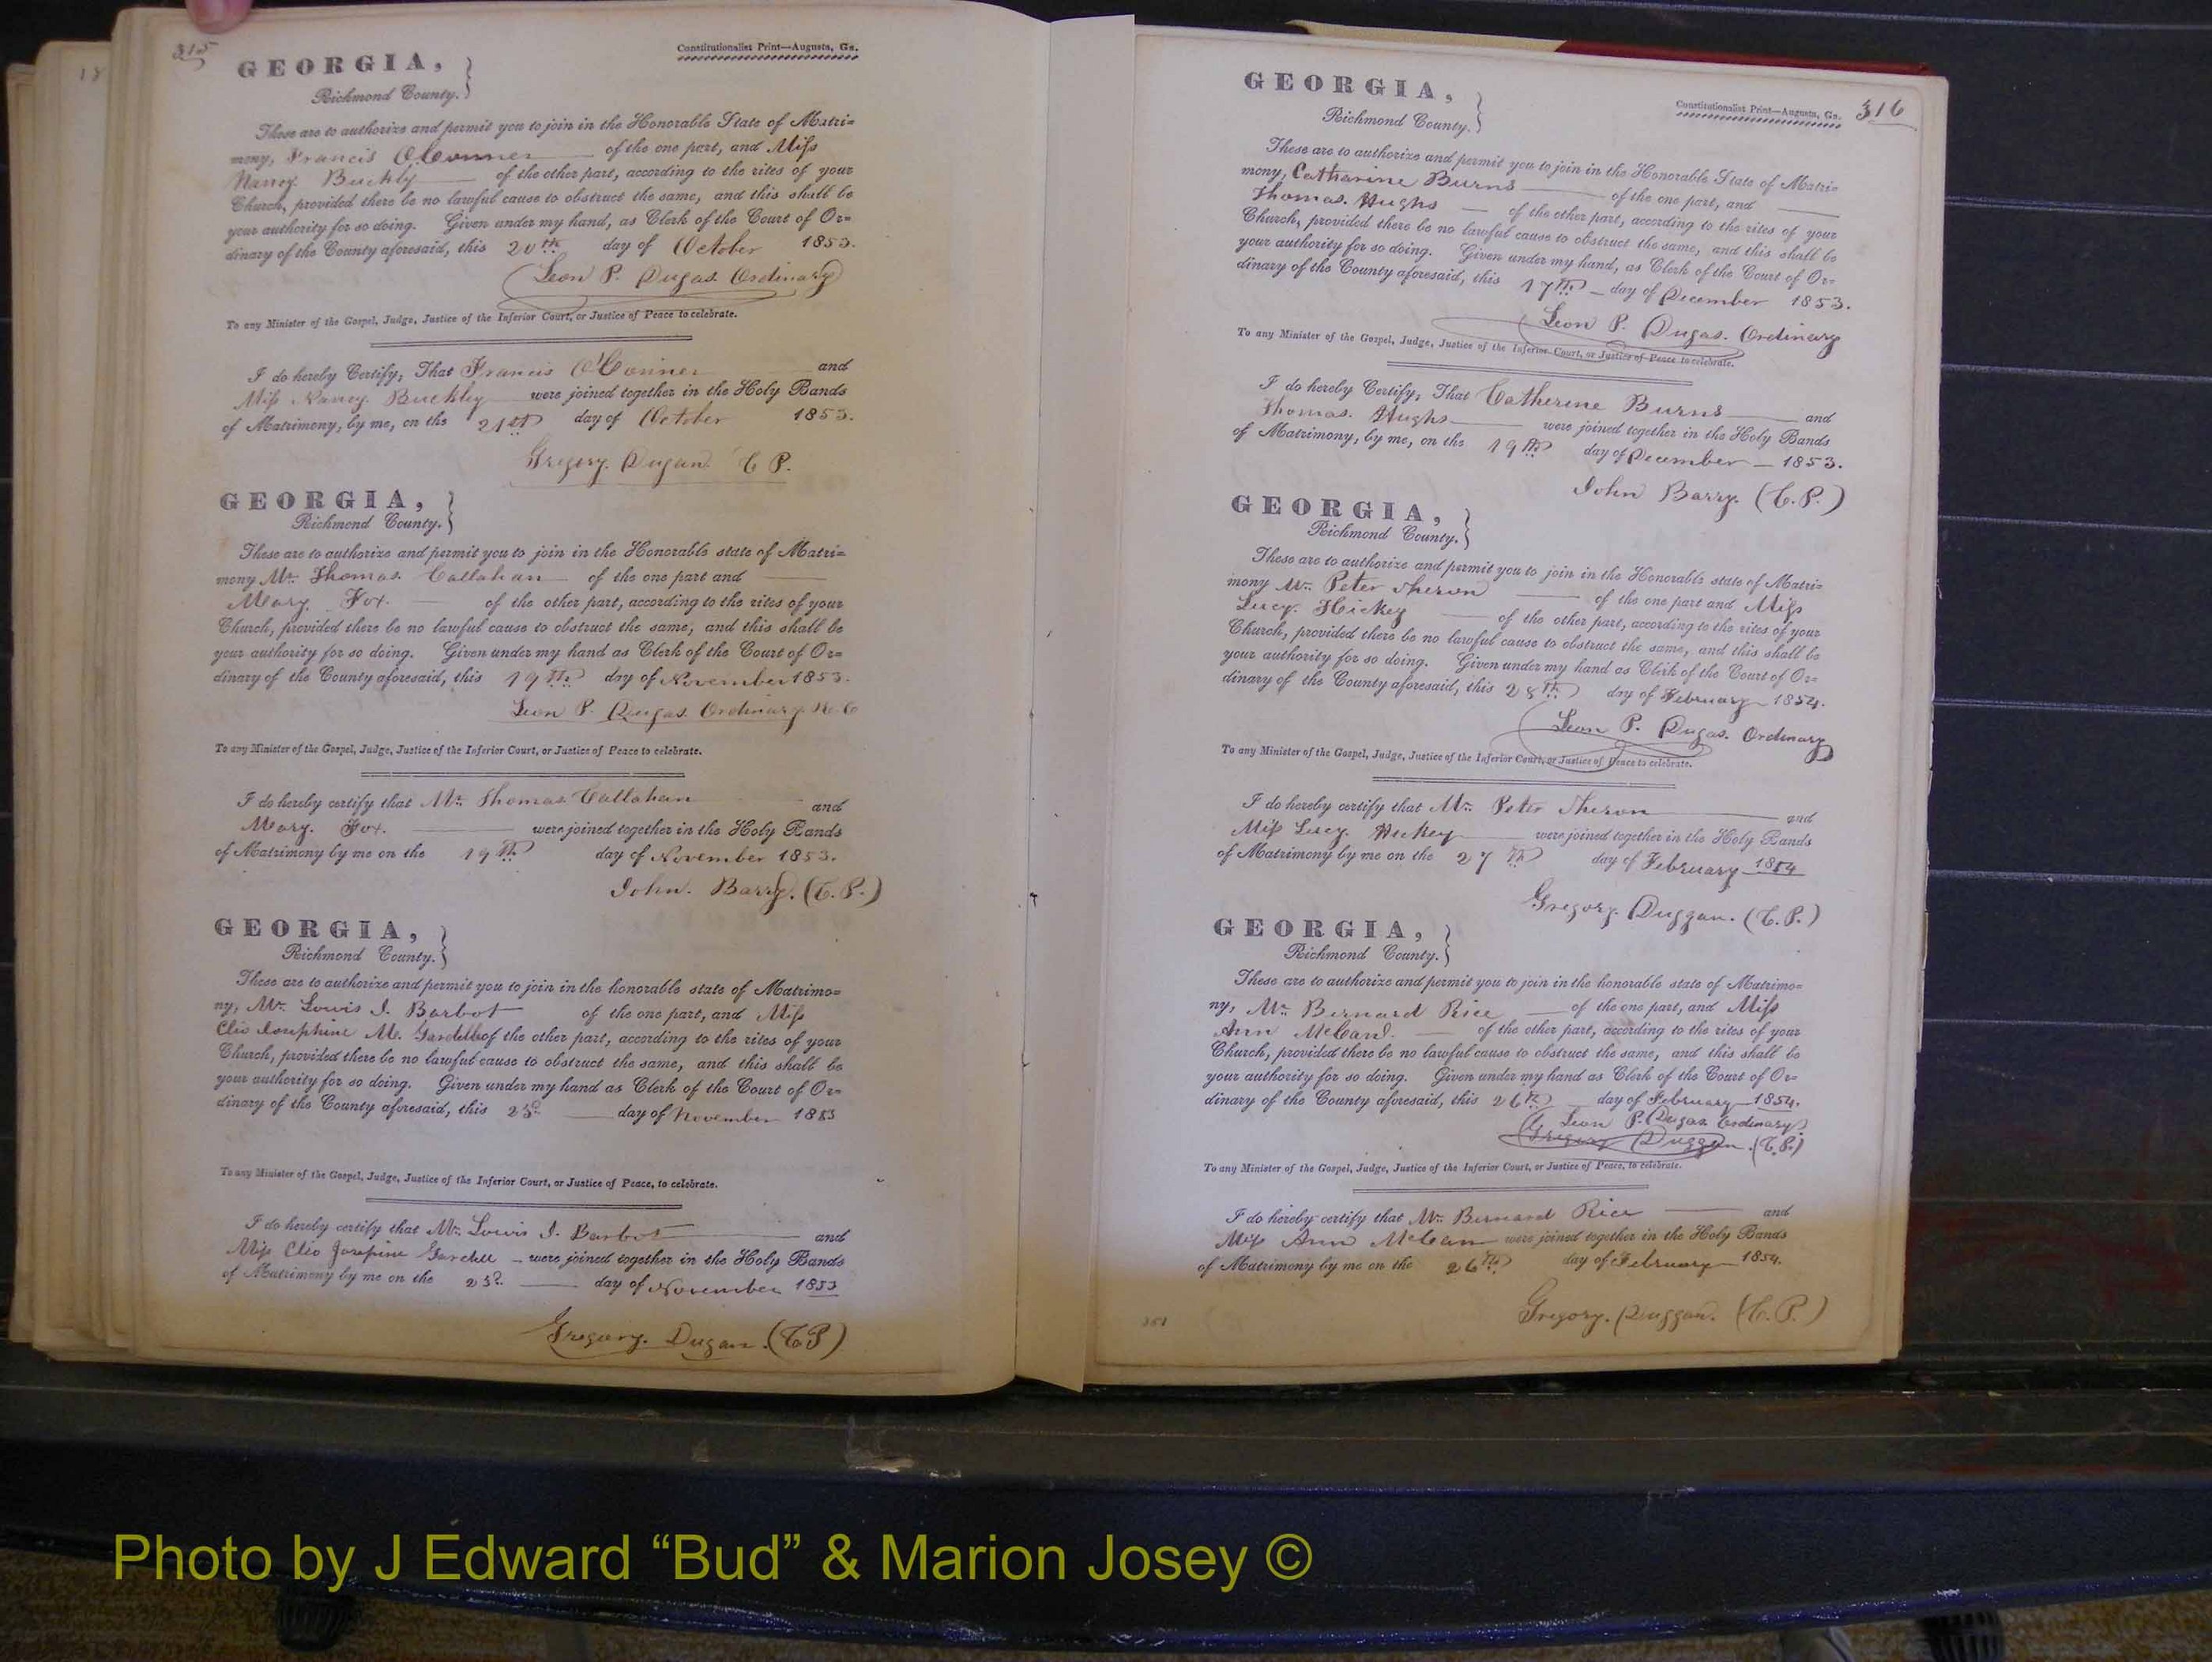 315
Constitutionalist Print—Augusta, Ga.
GEORGIA,
Richmond County.
These are to authorize and permit you to join in the Honorable State of Matri=
mony, Francis O'Conner of the one part, and Miss
Nancy Buckly of the other part, according to the rites of your
Church, provided there be no lawful cause to obstruct the same, and this shall be
your authority for so doing. Given under my hand, as Clerk of the Court of Or=
dinary of the County aforesaid, this 20th day of October 1853.
Leon P. Dugas Ordinary
To any Minister of the Gospel, Judge, Justice of the Inferior Court, or Justice of Peace to celebrate.
I do hereby Certify, That Francis O'Conner and
Miss Nancy Buckley were joined together in the Holy Bands
of Matrimony, by me, on the 21st day of October 1853.
Gregory Dugan C P.
GEORGIA,
Richmond County.
These are to authorize and permit you to join in the Honorable state of Matri=
mony Mr. Thomas Callahan of the one part and
Mary Fox. of the other part, according to the rites of your
Church, provided there be no lawful cause to obstruct the same, and this shall be
your authority for so doing. Given under my hand as Clerk of the Court of Or=
dinary of the County aforesaid, this 19th day of November 1853.
Leon P. Dugas Ordinary R. C
To any Minister of the Gospel, Judge, Justice of the Inferior Court, or Justice of Peace to celebrate.
I do hereby certify that Mr. Thomas Callahan and
Mary. Fox. were joined together in the Holy Bands
of Matrimony by me on the 19th day of November 1853.
John. Barry. (C. P.)
GEORGIA,
Richmond County.
These are to authorize and permit you to join in the honorable state of Matrimo=
ny, Mr. Lewis I. Barbot of the one part, and Miss
Clio Josephine M. of the other part, according to the rites of your
Church, provided there be no lawful cause to obstruct the same, and this shall be
your authority for so doing. Given under my hand as Clerk of the Court of Or=
dinary of the County aforesaid, this day of November 1853
To any Minister of the Gospel, Judge, Justice of the Inferior Court, or Justice of Peace, to celebrate.
I do hereby certify that Mr. Lewis I. Barbot and
Miss Clio Josepine Gardell were joined together in the Holy Bands
of Matrimony by me on the day of November 1853
Gregory. Dugan. (C P)
316
Constitutionalist Print—Augusta, Ga.
GEORGIA,
Richmond County.
These are to authorize and permit you to join in the Honorable State of Matri=
mony, Catharine Burns of the one part, and
Thomas. Hughs of the other part, according to the rites of your
Church, provided there be no lawful cause to obstruct the same, and this shall be
your authority for so doing. Given under my hand, as Clerk of the Court of Or=
dinary of the County aforesaid, this 17th day of December 1853.
Leon P. Dugas. Ordinary
To any Minister of the Gospel, Judge, Justice of the Inferior Court, or Justice of Peace to celebrate.
I do hereby Certify, That Catherine Burns and
Thomas. Hughs were joined together in the Holy Bands
of Matrimony, by me, on the 19th day of December 1853.
John Barry. (C. P.)
GEORGIA,
Richmond County.
These are to authorize and permit you to join in the Honorable state of Matri=
mony Mr. Peter of the one part and Miss
Lucy. Hickey of the other part, according to the rites of your
Church, provided there be no lawful cause to obstruct the same, and this shall be
your authority for so doing. Given under my hand as Clerk of the Court of Or=
dinary of the County aforesaid, this 28th day of February 1854.
Leon P. Dugas. Ordinary
To any Minister of the Gospel, Judge, Justice of the Inferior Court, or Justice of Peace to celebrate.
I do hereby certify that Mr. Peter and
Miss Lucy. Hickey were joined together in the Holy Bands
of Matrimony by me on the 27th day of February 1854
Gregory. Duggan. (C. P.)
GEORGIA,
Richmond County.
These are to authorize and permit you to join in the honorable state of Matrimo=
ny, Mr. Bernard Rice of the one part, and Miss
Ann McCan of the other part, according to the rites of your
Church, provided there be no lawful cause to obstruct the same, and this shall be
your authority for so doing. Given under my hand as Clerk of the Court of Or=
dinary of the County aforesaid, this 26th day of February 1854.
Leon P. Dugas Ordinary
Gregory Duggan. (C. P.)
To any Minister of the Gospel, Judge, Justice of the Inferior Court, or Justice of Peace, to celebrate.
I do hereby certify that Mr. Bernard Rice and
Miss Ann McCan were joined together in the Holy Bands
of Matrimony by me on the 26th day of February 1854.
Gregory. Duggan. (C. P.)
Photo by J Edward “Bud” & Marion Josey ©